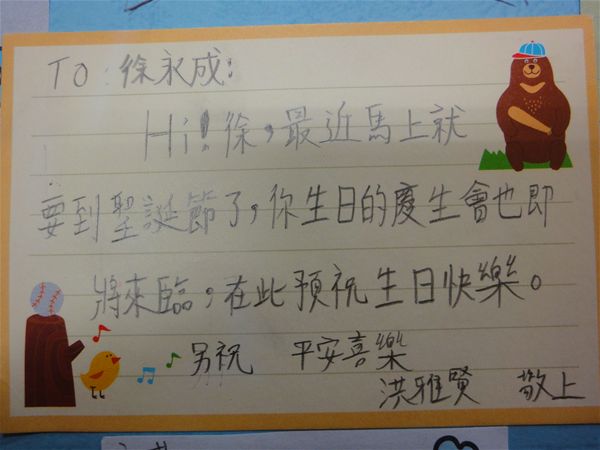 TO:徐永成:
Hi!徐,最近馬上就
要到聖誕節了,你生日的慶生會也即
將來臨,在此預祝生日快樂。
另祝 平安喜樂
洪雅賢 敬上